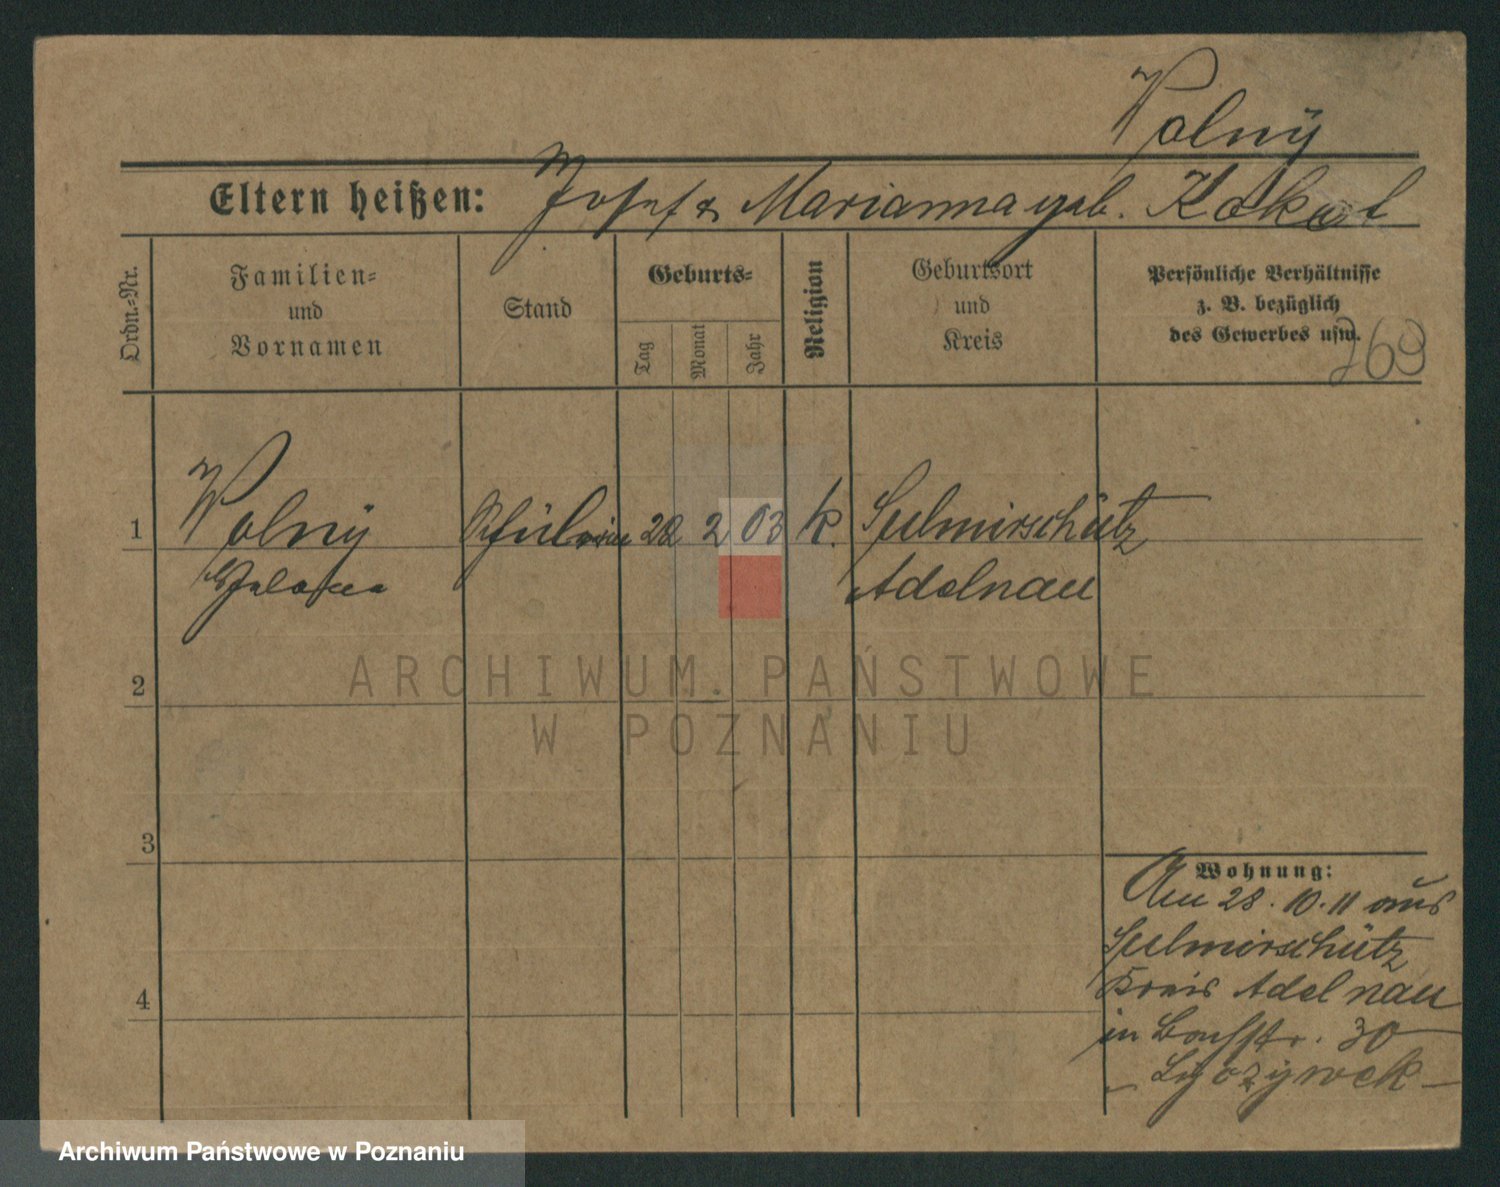 Wolnÿ
Eltern heißen: Josef & Marianna geb. Kokot
Ordn.-Nr.
Familien-
und
Vornamen
Stand
Geburts-
Tag
Monat
Jahr
Religion
Geburtsort
und
Kreis
Persönliche Verhältnisse
z. B. bezüglich
des Gewerbes usw.
269
1 Wolnÿ Schülerin 22 2 03 k. Sulmirschütz
Adelnau
ARCHIWUM PAŃSTWOWE
W POZNANIU
2
3
4
Wohnung:
Am 28.10.11 aus
Sulmirschütz
Kreis Adelnau
in 30
Archiwum Państwowe w Poznaniu